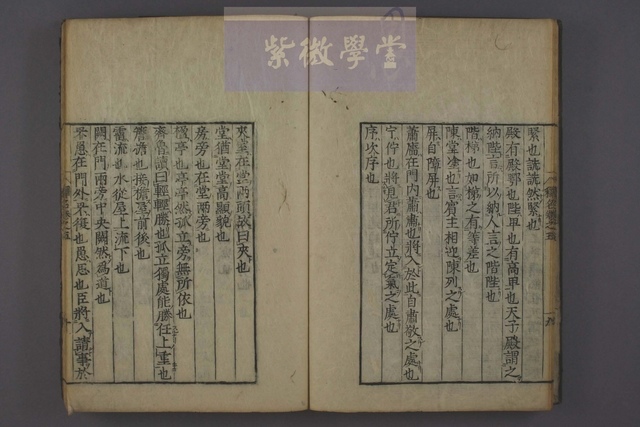 紫微學堂
緊也詵詵然緊也
殿有殿鄂也陛卑也有高卑也天子殿謂之
納陛言所以納人言之階陛也
階梯也如梯之有等差也
陳堂塗也言賓主相迎陳列之處也
屏自障屏也
蕭廧在門內蕭肅也將入於此自肅敬之處也
宁佇也將見君所佇立定氣之處也
序次序也
夾室在堂兩頭故曰夾也
堂猶堂堂高顯貌也
房旁也在堂兩旁也
楹亭也亭亭然孤立旁無所依也
齊魯讀曰輕輕勝也孤立獨處能勝任上重也
簷檐也接檐屋前後也
霤流也水從屋上流下也
闕在門兩旁中央闕然爲道也
罘罳在門外罘復也罳思也臣將入請事於